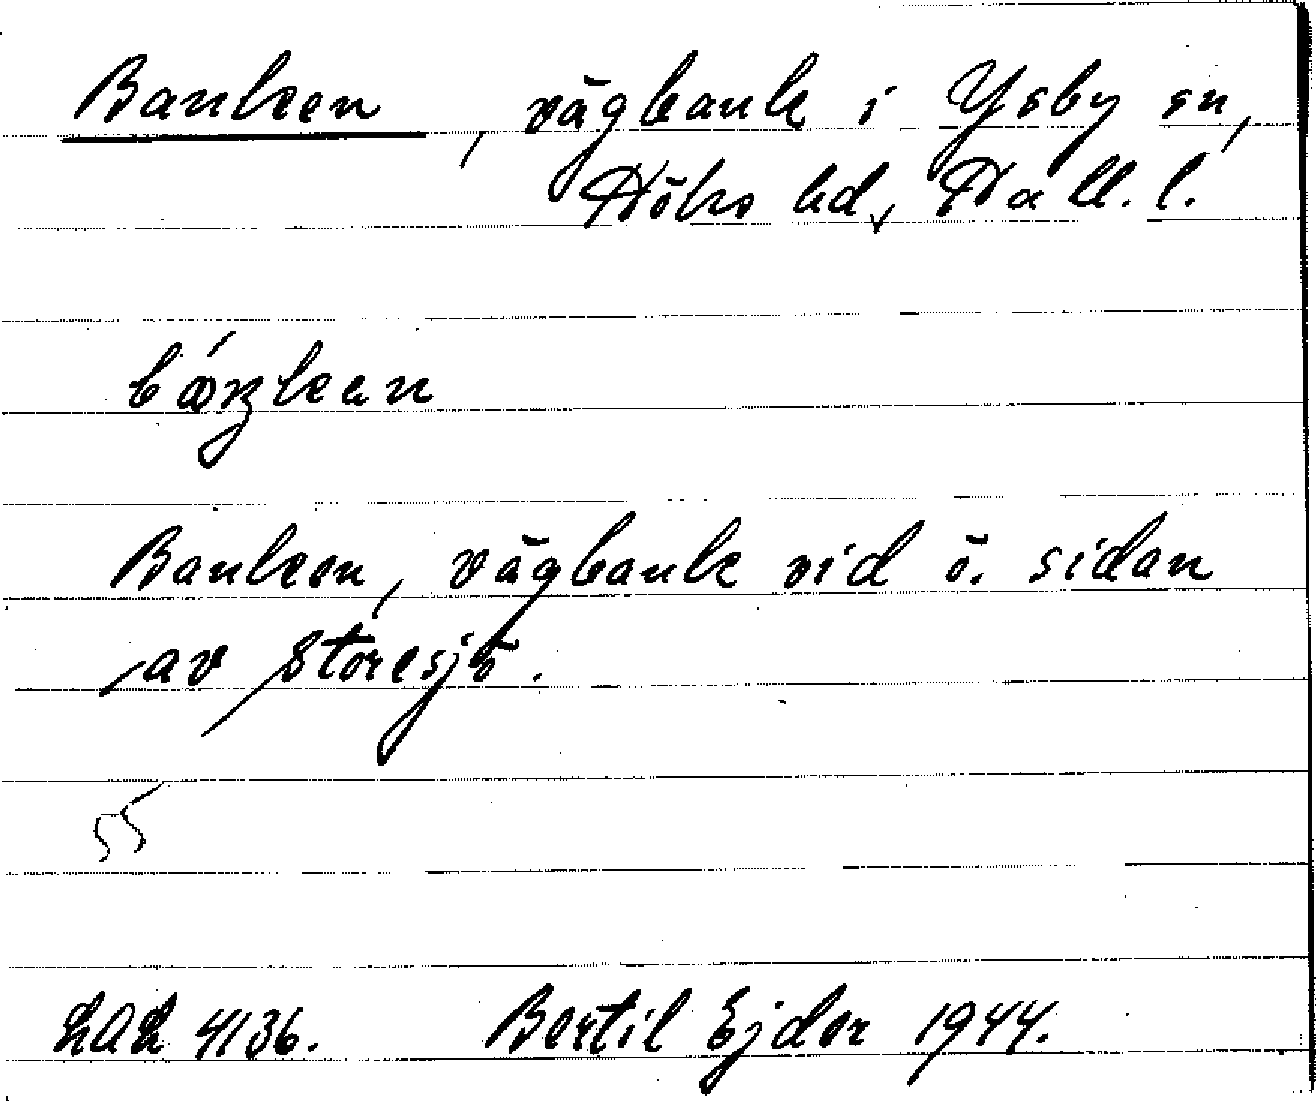 Banken, vägbank i Ysby sn,
Höks hd, Hall. l.
Banken, vägbank vid ö. sidan
av Storesjö.
55
LAL 4136. Bertil Ejder 1944.